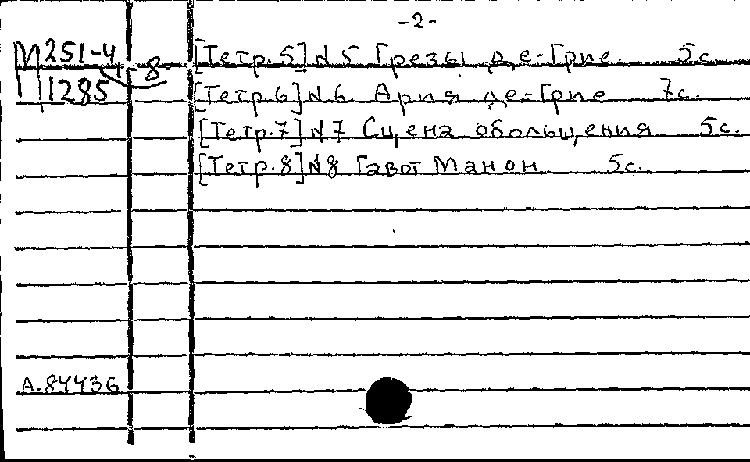 -2-
М 251-4 8 [Тетр.5] №5 Грезы де-Грие 5с.
1285 [Тетр.6] №6 Ария де-Грие 7с.
[Тетр.7] №7 Сцена обольщения 5с.
[Тетр.8] №8 Гавот Манон 5с.
А.84436